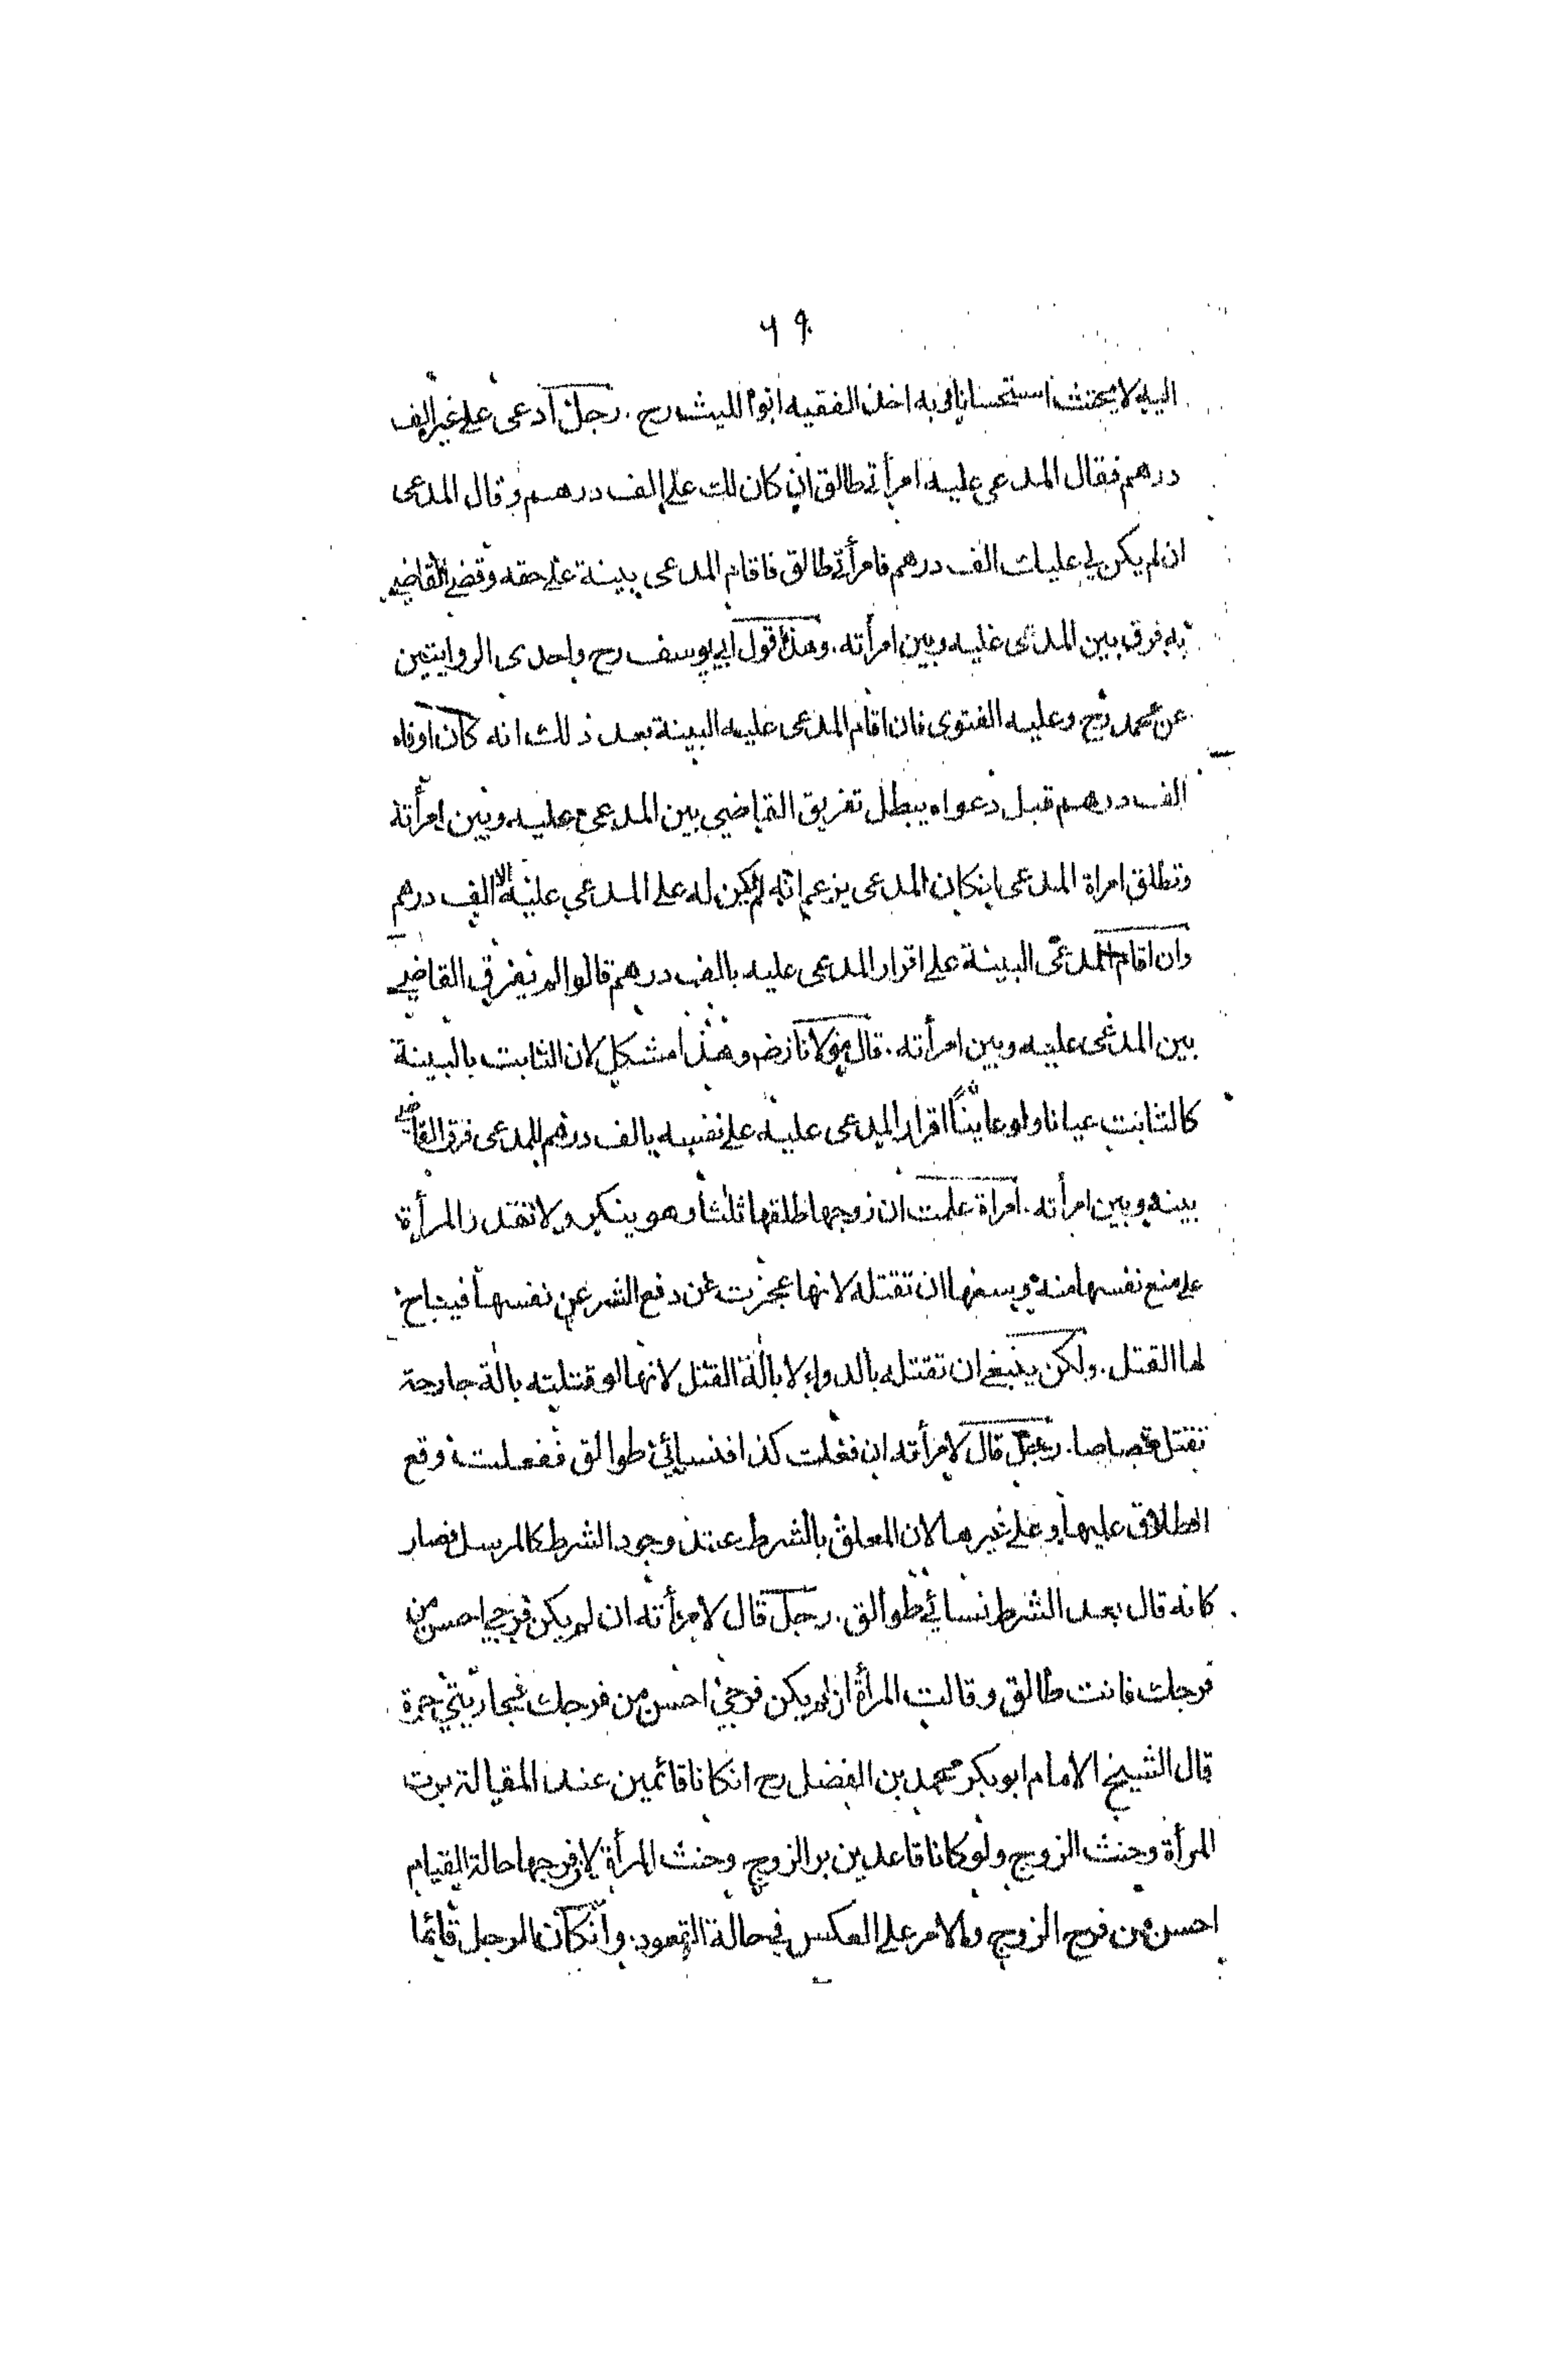 ٦٩
اليه لا يحنث استحسانا وبه اخذ الفقيه ابو الليث رح . رجل ادعى على غيره الف
درهم فقال المدعى عليه امرأتي طالق ان كان لك علي الف درهم وقال المدعى
ان لم يكن لي عليك الف درهم فامرأتي طالق فاقام المدعى بينة على حقه وقضى القاضي
به فرق بين المدعى عليه وبين امرأته . وهذا قول ابي يوسف رح واحدى الروايتين
عن محمد رح وعليه الفتوى فان اقام المدعى عليه البينة بعد ذلك انه كان اوفاه
الف درهم قبل دعواه يبطل تفريق القاضي بين المدعى عليه وبين امرأته
وتطلق امراة المدعى ان كان المدعى يزعم انه لم يكن له على المدعى عليه الا الف درهم
وان اقام المدعى البينة على اقرار المدعى عليه بالف درهم قالوا لم يفرق القاضي
بين المدعى عليه وبين امرأته . قال مولانا رض وهذا مشكل لان الثابت بالبينة
كالثابت عيانا ولو عاينّا اقرار المدعى عليه على نفسه بالف درهم للمدعى فرق القاضي
بينه وبين امرأته . امراة علمت ان زوجها طلقها ثلثا وهو ينكر ولا تقدر المرأة
على منع نفسها منه وسعها ان تقتله لانها عجزت عن دفع الشر عن نفسها فيباح
لها القتل . ولكن ينبغي ان تقتله بالدواء لا بالة القتل لانها لو قتلته بالة جارحة
تقتل قصاصا . رجل قال لامرأته ان فعلت كذا فنسائي طوالق ففعلت وقع
الطلاق عليها وعلى غيرها لان المعلق بالشرط عند وجود الشرط كالمرسل فصار
كانه قال بعد الشرط نسائي طوالق . رجل قال لامرأته ان لم يكن فرجي احسن من
فرجك فانت طالق وقالت المرأة ان لم يكن فرجي احسن من فرجك فجاريتي حرة
قال الشيخ الامام ابو بكر محمد بن الفضل رح انكانا قائمين عند المقالة برت
المرأة وحنث الزوج ولو كانا قاعدين بر الزوج وحنث المرأة لان فرجها حالة القيام
احسن من فرج الزوج والامر على العكس في حالة القعود . وانكان الرجل قائما